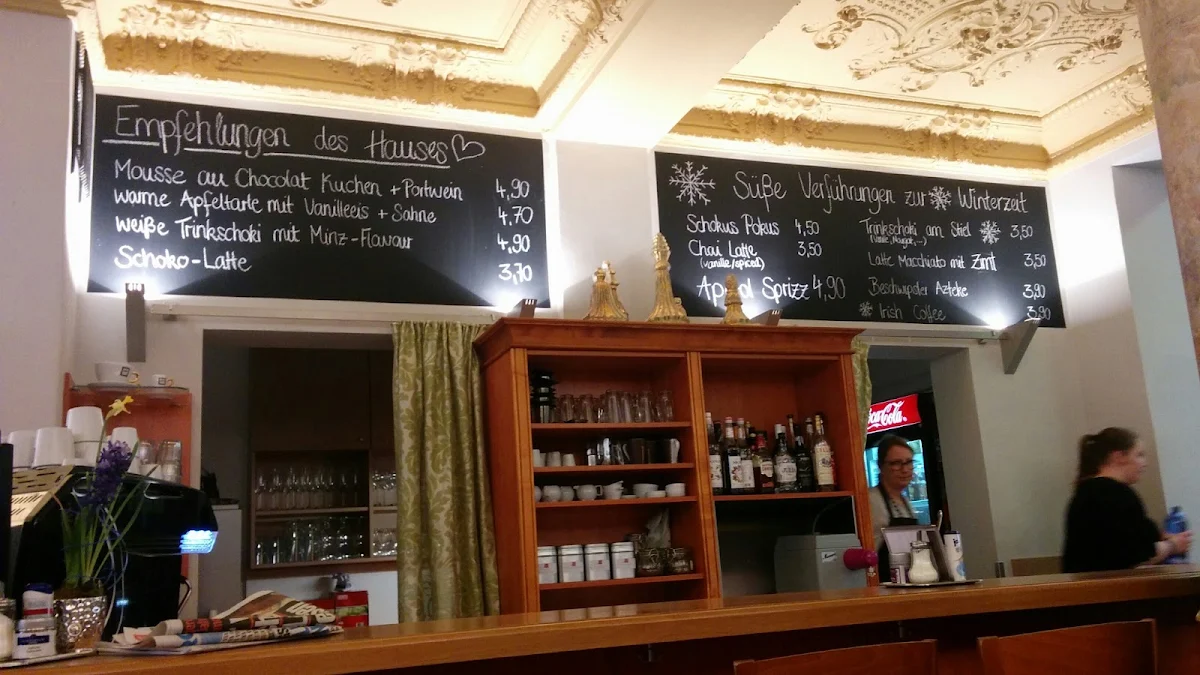 Empfehlungen des Hauses
Mousse au Chocolat Kuchen + Portwein 4,90
warme Apfeltarte mit Vanilleeis + Sahne 4,70
weiße Trinkschoki mit Minz-Flavour 4,90
Schoko-Latte 3,70
Süße Verführungen zur Winterzeit
Schokus Pokus 4,50
Chai Latte 3,50
(vanille/spiced)
Sprizz 4,90
Trinkschoki am Stiel 3,50
(Vanille, Nougat,...)
Latte Macchiato mit Zimt 3,50
Beschwipster Azteke 3,90
Irish Coffee 3,90
Coca-Cola